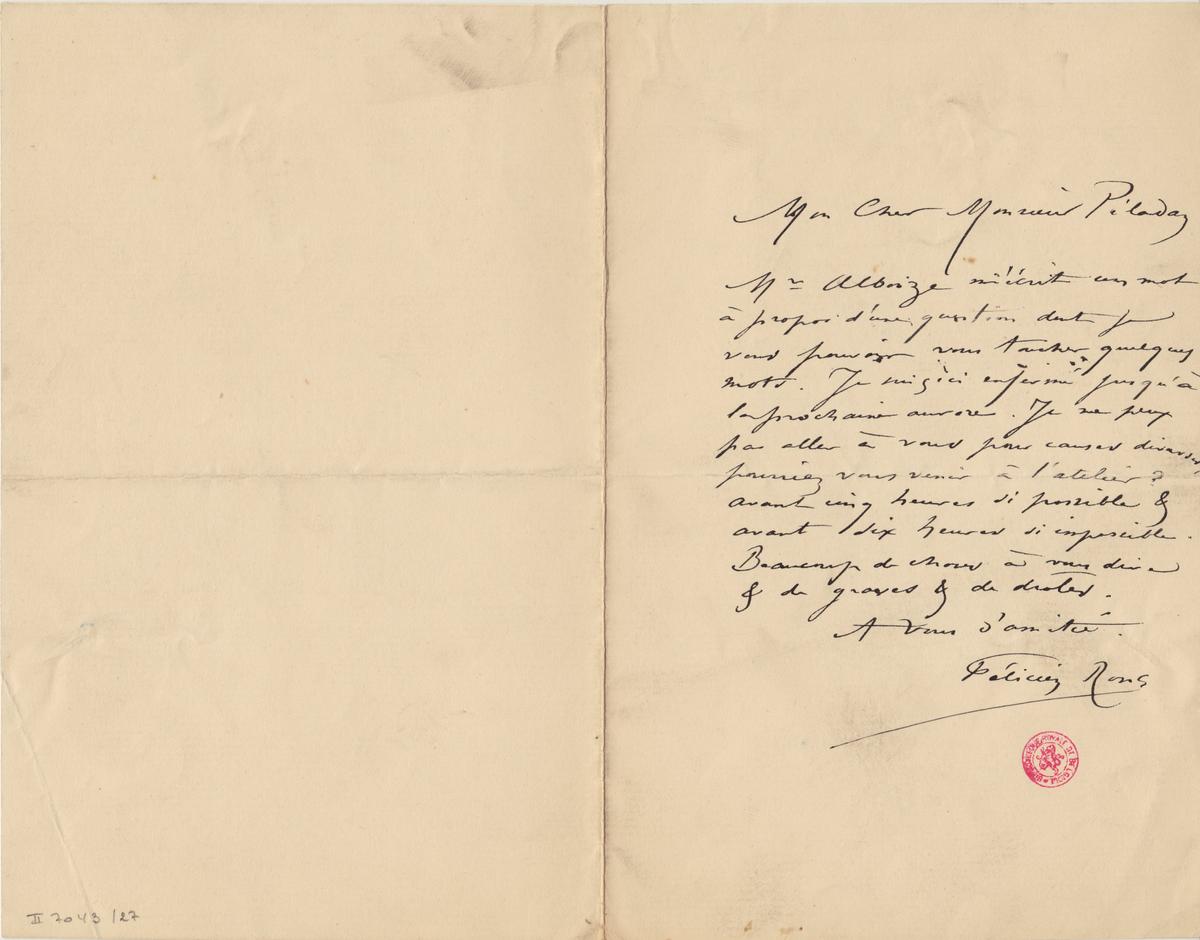 Mon Cher Monsieur Péladan
Mr Alboize m'écrit un mot
à propos d'une question dont je
vous pouvoir vous toucher quelques
mots. Je suis ici enfermé jusqu'à
la prochaine aurore. Je ne peux
pas aller à vous pour causer
pourriez vous venir à l'atelier?
avant cinq heures si possible &
avant dix heures si impossible.
Beaucoup de choses à vous dire
& de graves & de drôles.
A Vous d'amitié.
Félicien Rops
BIBLIOTHEQUE ROYALE DE BELGIQUE
II 7043 /27